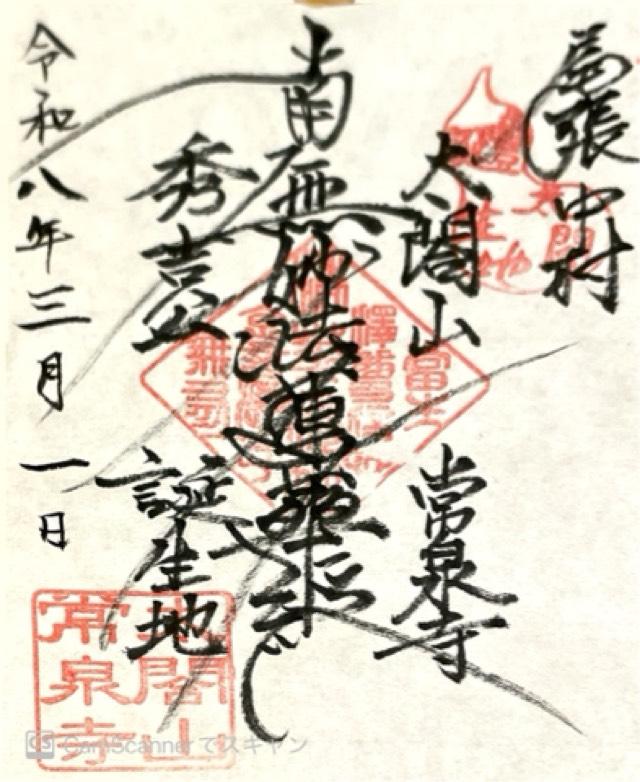 尾張中村
太閤山 常泉寺
南無妙法蓮華経
秀吉公 誕生地
令和八年三月一日
太閤山
常泉寺
CS CamScannerでスキャン